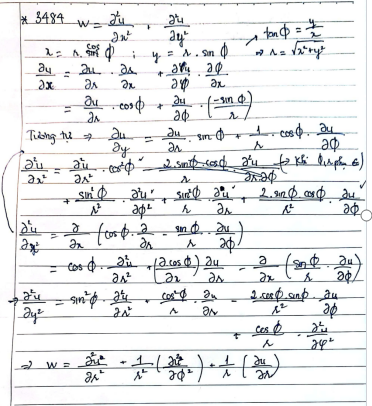 * 3484 W = ∂²u/∂x² + ∂²u/∂y²
x = r.cosϕ ; y = r.sinϕ
tanϕ = y/x
⇒ r = √(x²+y²)
∂u/∂x = ∂u/∂r · ∂r/∂x + ∂u/∂ϕ · ∂ϕ/∂x
= ∂u/∂r · cosϕ + ∂u/∂ϕ · (-sinϕ/r)
Tương tự ⇒ ∂u/∂y = ∂u/∂r · sinϕ + 1/r · cosϕ · ∂u/∂ϕ
∂²u/∂x² = ∂²u/∂r² · cos²ϕ - 2.sinϕ.cosϕ/r · ∂²u/∂r∂ϕ (→ Khi ϕ, r
+ sin²ϕ/r² · ∂²u/∂ϕ² + sin²ϕ/r · ∂u/∂r + 2.sinϕ.cosϕ/r² · ∂u/∂ϕ
∂²u/∂x² = ∂/∂x (cosϕ · ∂u/∂r - sinϕ/r · ∂u/∂ϕ)
= cosϕ · ∂²u/∂r² + (∂.cosϕ/∂x) ∂u/∂r - ∂/∂x (sinϕ/r · ∂u/∂ϕ)
→ ∂²u/∂y² = sin²ϕ · ∂²u/∂r² + cos²ϕ/r · ∂u/∂r - 2.cosϕ.sinϕ/r² · ∂u/∂ϕ
+ cosϕ/r · ∂²u/∂φ²
⇒ W = ∂²u/∂r² + 1/r² (∂²u/∂ϕ²) + 1/r (∂u/∂r)